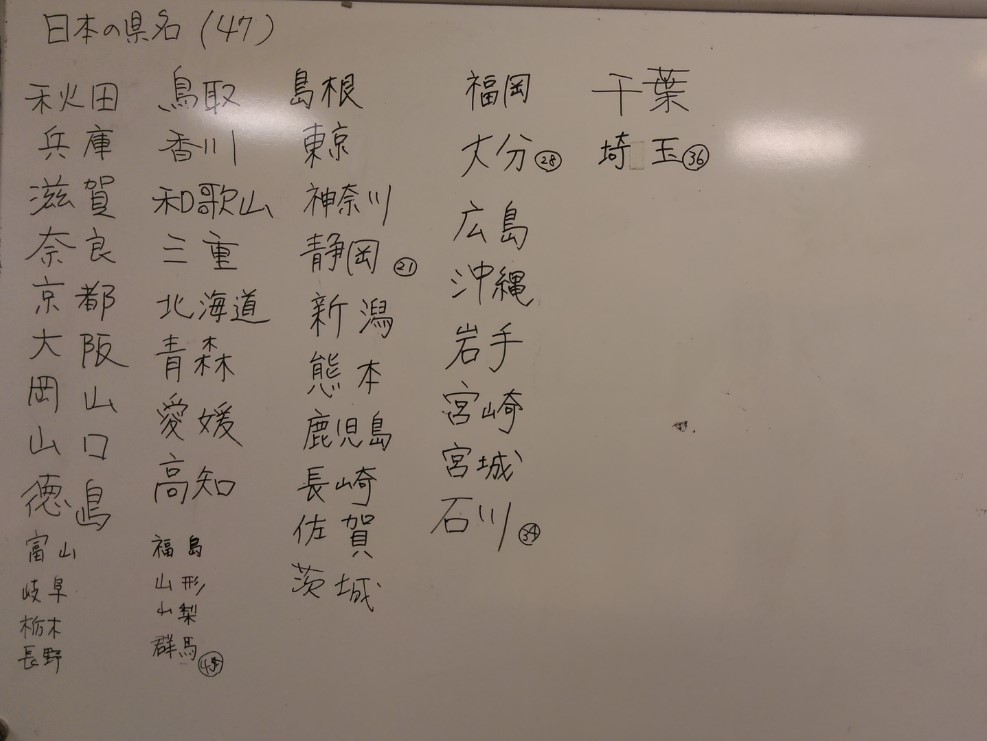 日本の県名(47)
秋田
兵庫
滋賀
奈良
京都
大阪
岡山
山口
徳島
富山
岐阜
栃木
長野
鳥取
香川
和歌山
三重
北海道
青森
愛媛
高知
福島
山形
山梨
群馬 45
島根
東京
神奈川
静岡 21
新潟
熊本
鹿児島
長崎
佐賀
茨城
福岡
大分 28
広島
沖縄
岩手
宮崎
宮城
石川 34
千葉
埼玉 36